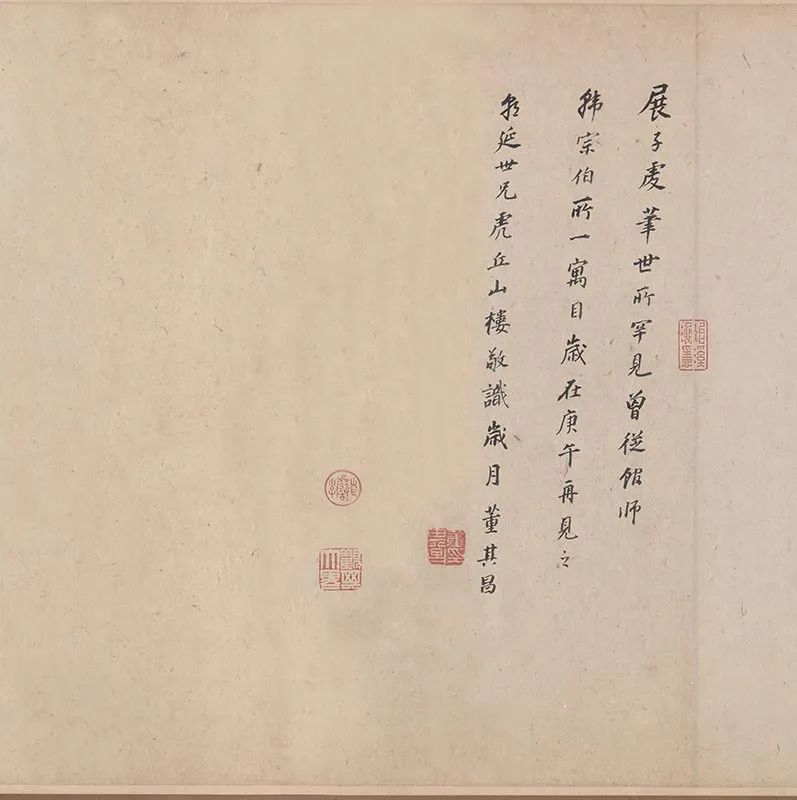 展子虔筆世所罕見曾從館師
韓宗伯所一寓目歲在庚午再見之
朝延世兄虎丘山樓敬識歲月 董其昌